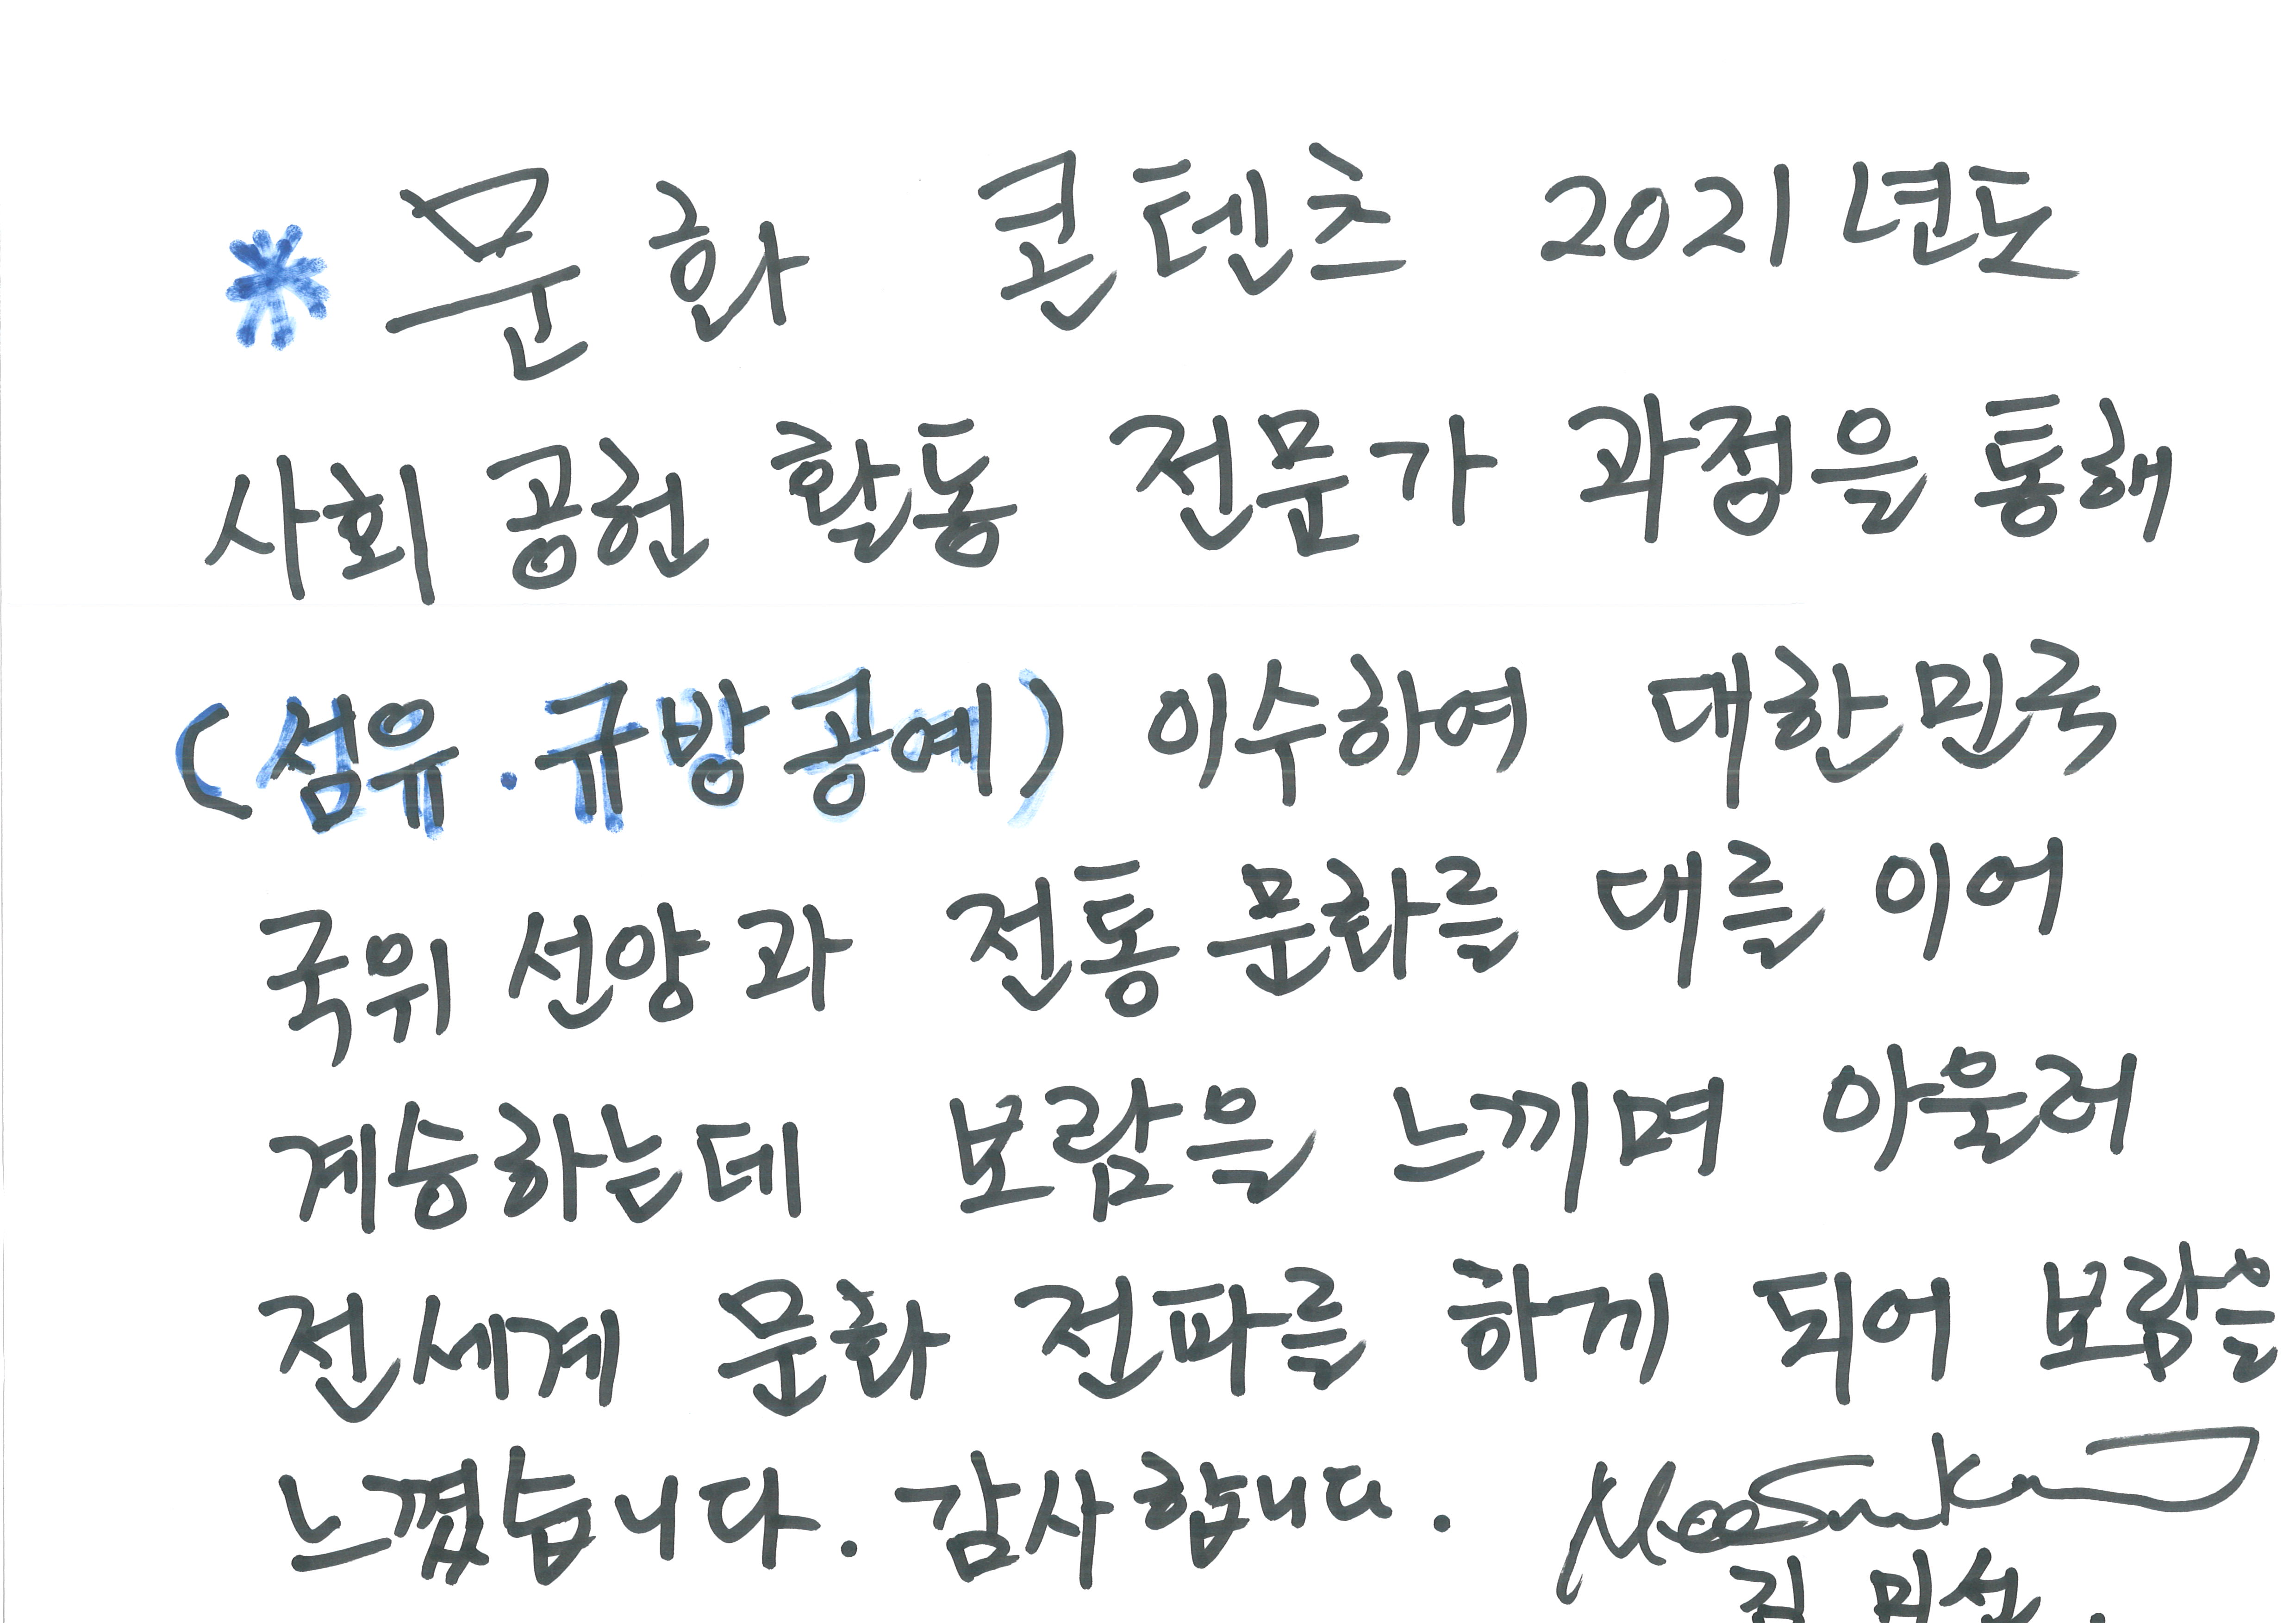 * 문화 콘텐츠 2021년도
사회 공헌 활동 전문가 과정을 통해
(섬유.규방공예) 이수하여 대한민국
국위 선양과 전통문화를 대를 이어
계능하는데 보람을 느끼며 아울러
전세계 문화 전파를 하게 되어 보람을
느꼈습니다. 감사합니다.